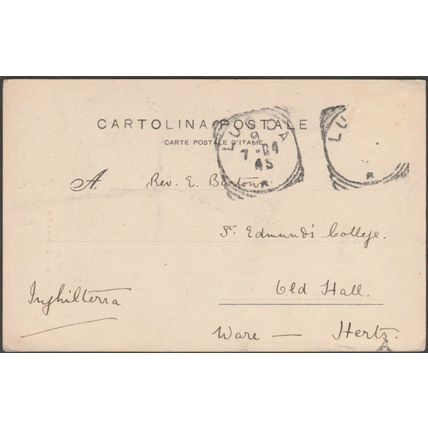 CARTOLINA POSTALE
CARTE POSTALE D'ITALIE
LUCCA
9
7-04
4S
LU
A. Rev. E. Burton
St. Edmund's College.
Old Hall.
Inghilterra
Ware — Herts.